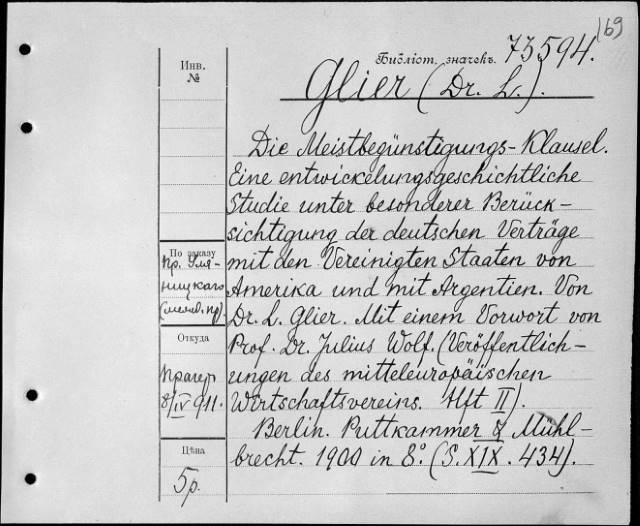 169
Библіот. значекъ. 73594.
Инв.
№
Glier (Dr. L.).
Die Meistbegünstigungs-Klausel.
Eine entwickelungsgeschichtliche
Studie unter besonderer Berück-
sichtigung der deutschen Verträge
mit den Vereinigten Staaten von
Amerika und mit Argentien. Von
Dr. L. Glier. Mit einem Vorwort von
Prof. Dr. Julius Wolf. (Veröffentlich-
ungen des mitteleuropäischen
Wirtschaftsvereins. Hft II).
Berlin. Puttkammer & Mühl-
brecht. 1900 in 8°. (S. XIX. 434).
По заказу
пр. Уля-
ницкаго
Откуда
Прагер
8/IV 911.
Цѣна
5р.